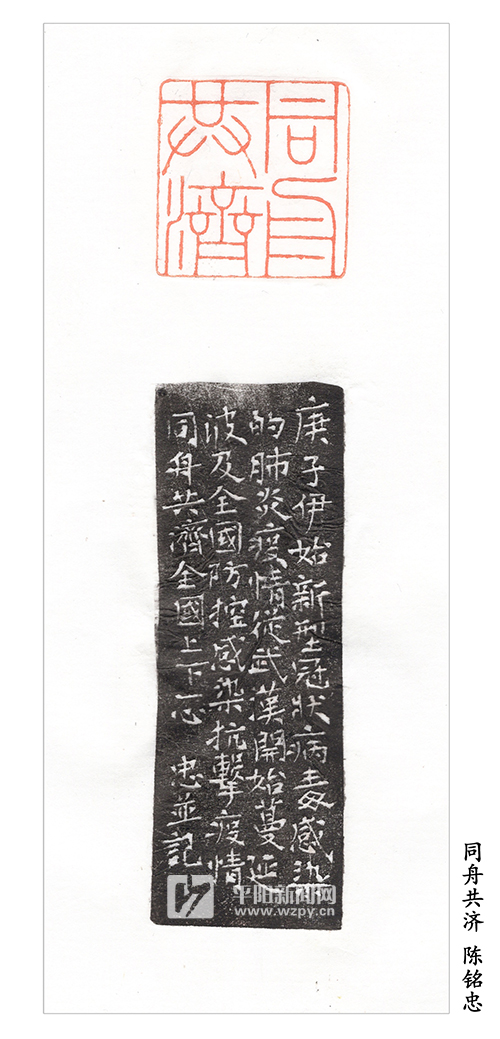 同舟
共濟
庚子伊始新型冠狀病毒感染
的肺炎疫情從武漢開始蔓延
波及全國防控感染抗擊疫情
同舟共濟全國上下一心 忠並記
平阳新闻网
www.wzpy.cn
同舟共济 陈铭忠